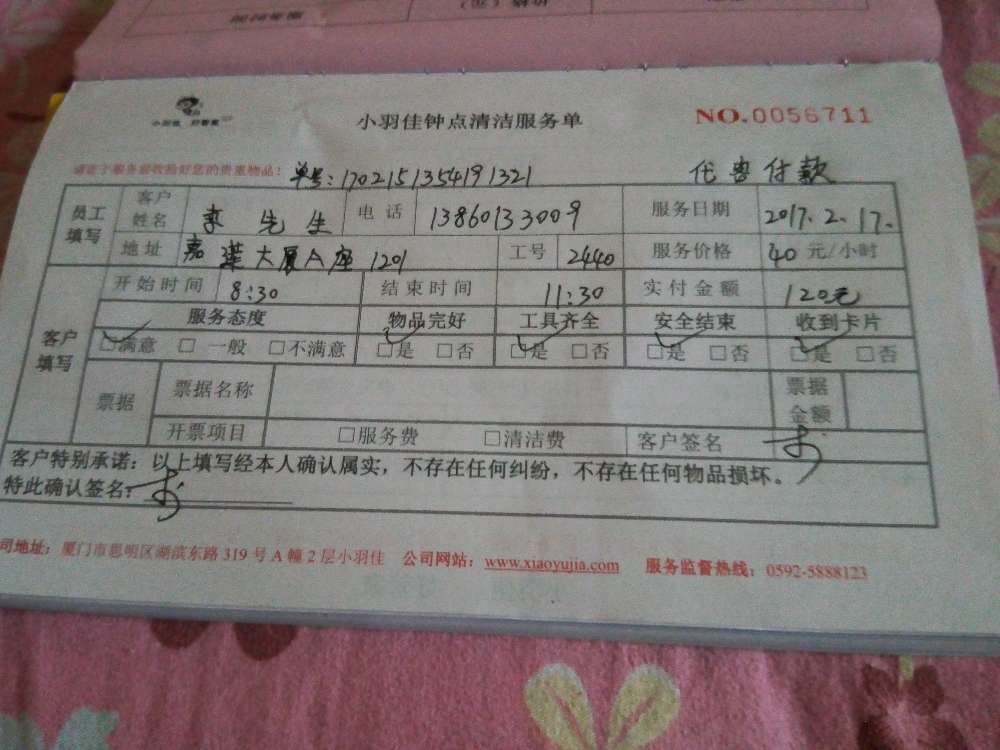 小羽佳 好管家
小羽佳钟点清洁服务单
NO.0056711
请在服务前收拾好您的贵重物品!
单号:170215135419 1321
代客付款
员工填写 客户姓名 李先生 电话 13860133009 服务日期 2017.2.17.
地址 嘉莲大厦A座1201 工号 2440 服务价格 40元/小时
客户填写 开始时间 8:30 结束时间 11:30 实付金额 120元
服务态度 物品完好 工具齐全 安全结束 收到卡片
☑满意 □一般 □不满意 ☑是 □否 ☑是 □否 ☑是 □否 ☑是 □否
票据 票据名称 票据金额
开票项目 □服务费 □清洁费 客户签名
客户特别承诺:以上填写经本人确认属实,不存在任何纠纷,不存在任何物品损坏。
特此确认签名:
司地址:厦门市思明区湖滨东路319号A幢2层小羽佳 公司网站:www.xiaoyujia.com 服务监督热线:0592-5888123